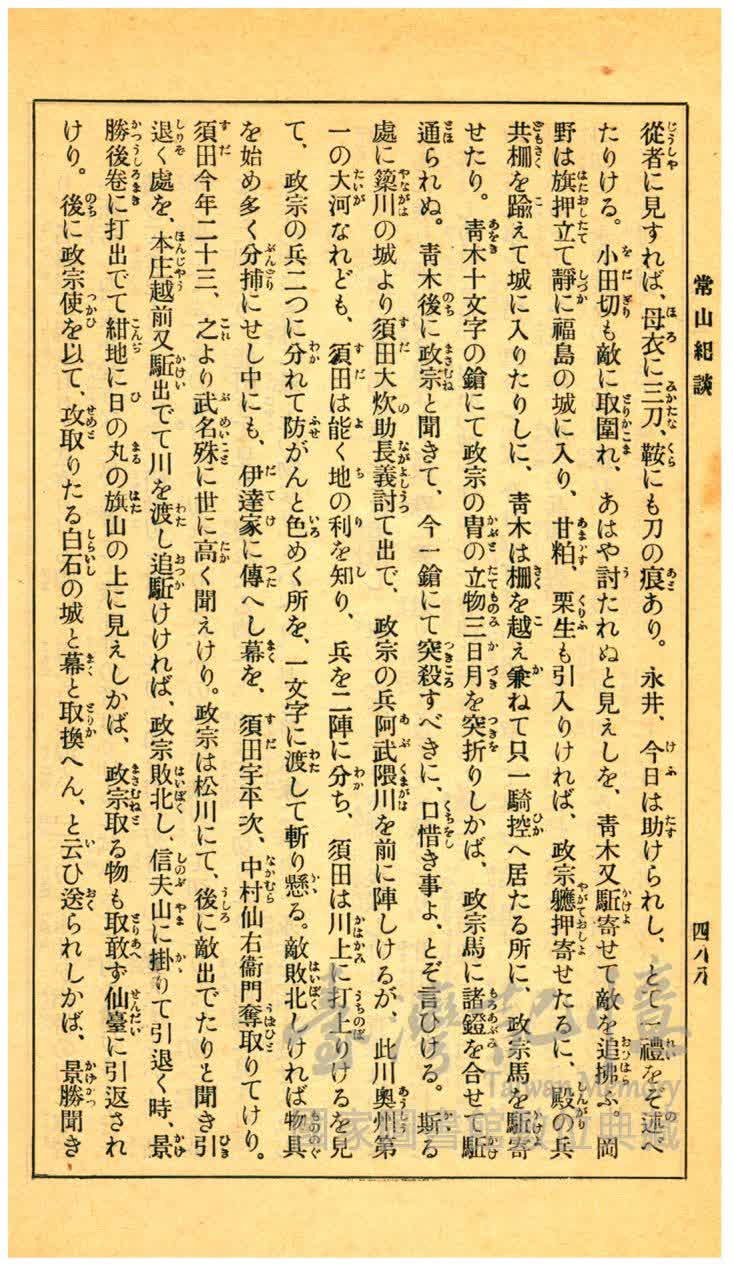 常山紀談
四八八
從者に見すれば、母衣に三刀、鞍にも刀の痕あり。永井、今日は助けられし、とて一禮をぞ述べ
たりける。小田切も敵に取圍れ、あはや討たれぬと見えしを、青木又駈寄せて敵を追拂ふ。岡
野は旗押立て靜に福島の城に入り、甘粕、栗生も引入りければ、政宗軈押寄せたるに、殿の兵
共柵を踰えて城に入りたりしに、青木は柵を越え兼ねて只一騎控へ居たる所に、政宗馬を駈寄
せたり。青木十文字の鎗にて政宗の冑の立物三日月を突折りしかば、政宗馬に諸鐙を合せて駈
通られぬ。青木後に政宗と聞きて、今一鎗にて突殺すべきに、口惜き事よ、とぞ言ひける。斯る
處に簗川の城より須田大炊助長義討て出で、政宗の兵阿武隈川を前に陣しけるが、此川奧州第
一の大河なれども、須田は能く地の利を知り、兵を二陣に分ち、須田は川上に打上りけるを見
て、政宗の兵二つに分れて防がんと色めく所を、一文字に渡して斬り懸る。敵敗北しければ物具
を始め多く分捕にせし中にも、伊達家に傳へし幕を、須田宇平次、中村仙右衞門奪取りてけり。
須田今年二十三、之より武名殊に世に高く聞えけり。政宗は松川にて、後に敵出でたりと聞き引
退く處を、本庄越前又駈出でて川を渡し追駈けければ、政宗敗北し、信夫山に掛りて引退く時、景
勝後卷に打出でて紺地に日の丸の旗山の上に見えしかば、政宗取る物も取敢ず仙臺に引返され
けり。後に政宗使を以て、攻取りたる白石の城と幕と取換へん、と云ひ送られしかば、景勝聞き
臺灣記憶
Taiwan Memory
國家圖書館數位典藏